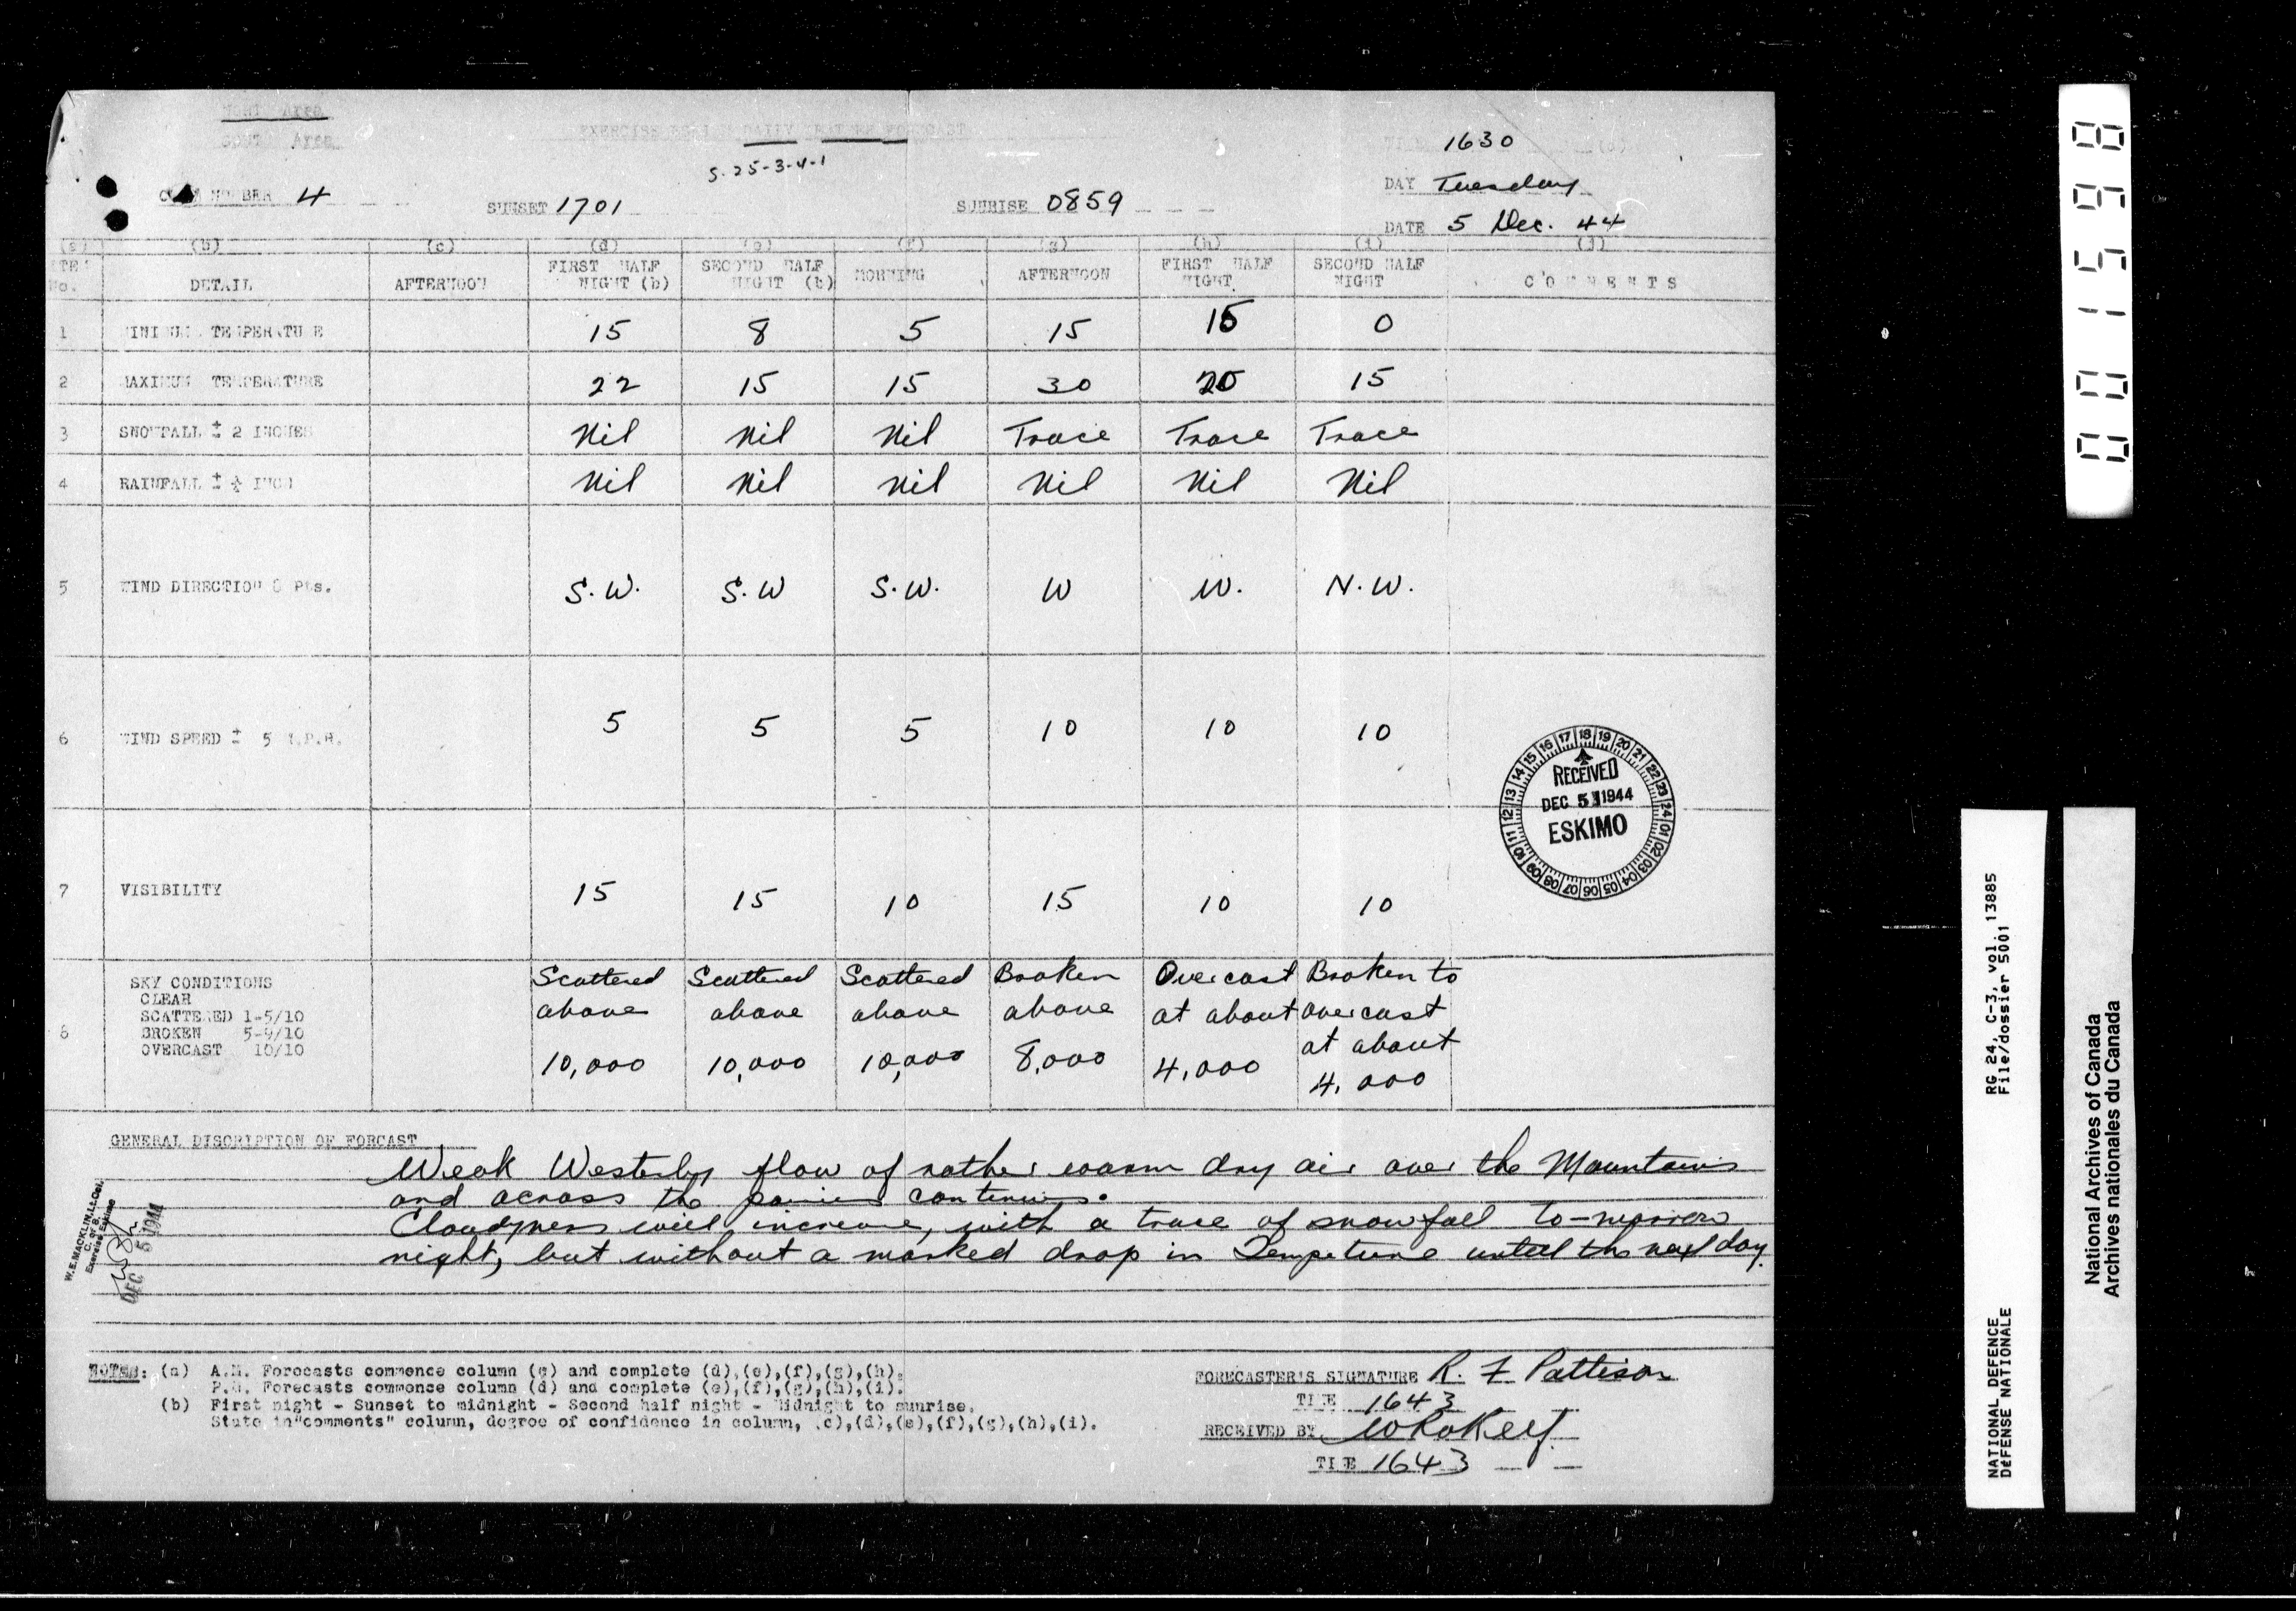 Area
Area
EXERCISE DAILY FORECAST
S-25-3-4-1
1630 (a)
DAY Tuesday
DATE 5 Dec. 44
4
SUNSET 1701
SUNRISE 0859
(a) (b) (c) (d) (e) (f) (g) (h) (i) (j)
No. DETAIL AFTERNOON FIRST HALF NIGHT (b) SECOND HALF NIGHT (b) MORNING AFTERNOON FIRST HALF NIGHT SECOND HALF NIGHT COMMENTS
1 MINIMUM TEMPERATURE 15 8 5 15 15 0
2 MAXIMUM TEMPERATURE 22 15 15 30 20 15
3 SNOWFALL ± 2 INCHES Nil Nil Nil Trace Trace Trace
4 RAINFALL ± ½ INCH Nil Nil Nil Nil Nil Nil
5 WIND DIRECTION 8 Pts. S.W. S.W S.W. W W. N.W.
6 WIND SPEED ± 5 M.P.H. 5 5 5 10 10 10
7 VISIBILITY 15 15 10 15 10 10
8 SKY CONDITIONS
CLEAR
SCATTERED 1-5/10
BROKEN 5-9/10
OVERCAST 10/10
Scattered above 10,000
Scattered above 10,000
Scattered above 10,000
Broken above 8,000
Overcast at about 4,000
Broken to overcast at about 4,000
RECEIVED
DEC 5 1944
ESKIMO
01 02 03 04 05 06 07 08 09 10 11 12 13 14 15 16 17 18 19 20 21 22 23 24
GENERAL DISCRIPTION OF FORCAST
Weak Westerly flow of rather warm dry air over the Mountains
and across the prairies continues.
Cloudyness will increase, with a trace of snowfall to-morrow
night, but without a marked drop in Tempeture until the next day.
W.E.MACKLIN, Lt.Col.
C. of B.
Exercise Eskimo
DEC 5 1944
NOTES: (a) A.M. Forecasts commence column (c) and complete (d),(e),(f),(g),(h).
P.M. Forecasts commence column (d) and complete (e),(f),(g),(h),(i).
(b) First night - Sunset to midnight - Second half night - Midnight to sunrise.
State in "comments" column, degree of confidence in column, (c),(d),(e),(f),(g),(h),(i).
FORECASTER'S SIGNATURE R. F Pattison
TIME 1643
RECEIVED BY
TIME 1643
001598
RG 24, C-3, vol. 13885
File/dossier 5001
NATIONAL DEFENCE
DÉFENSE NATIONALE
National Archives of Canada
Archives nationales du Canada